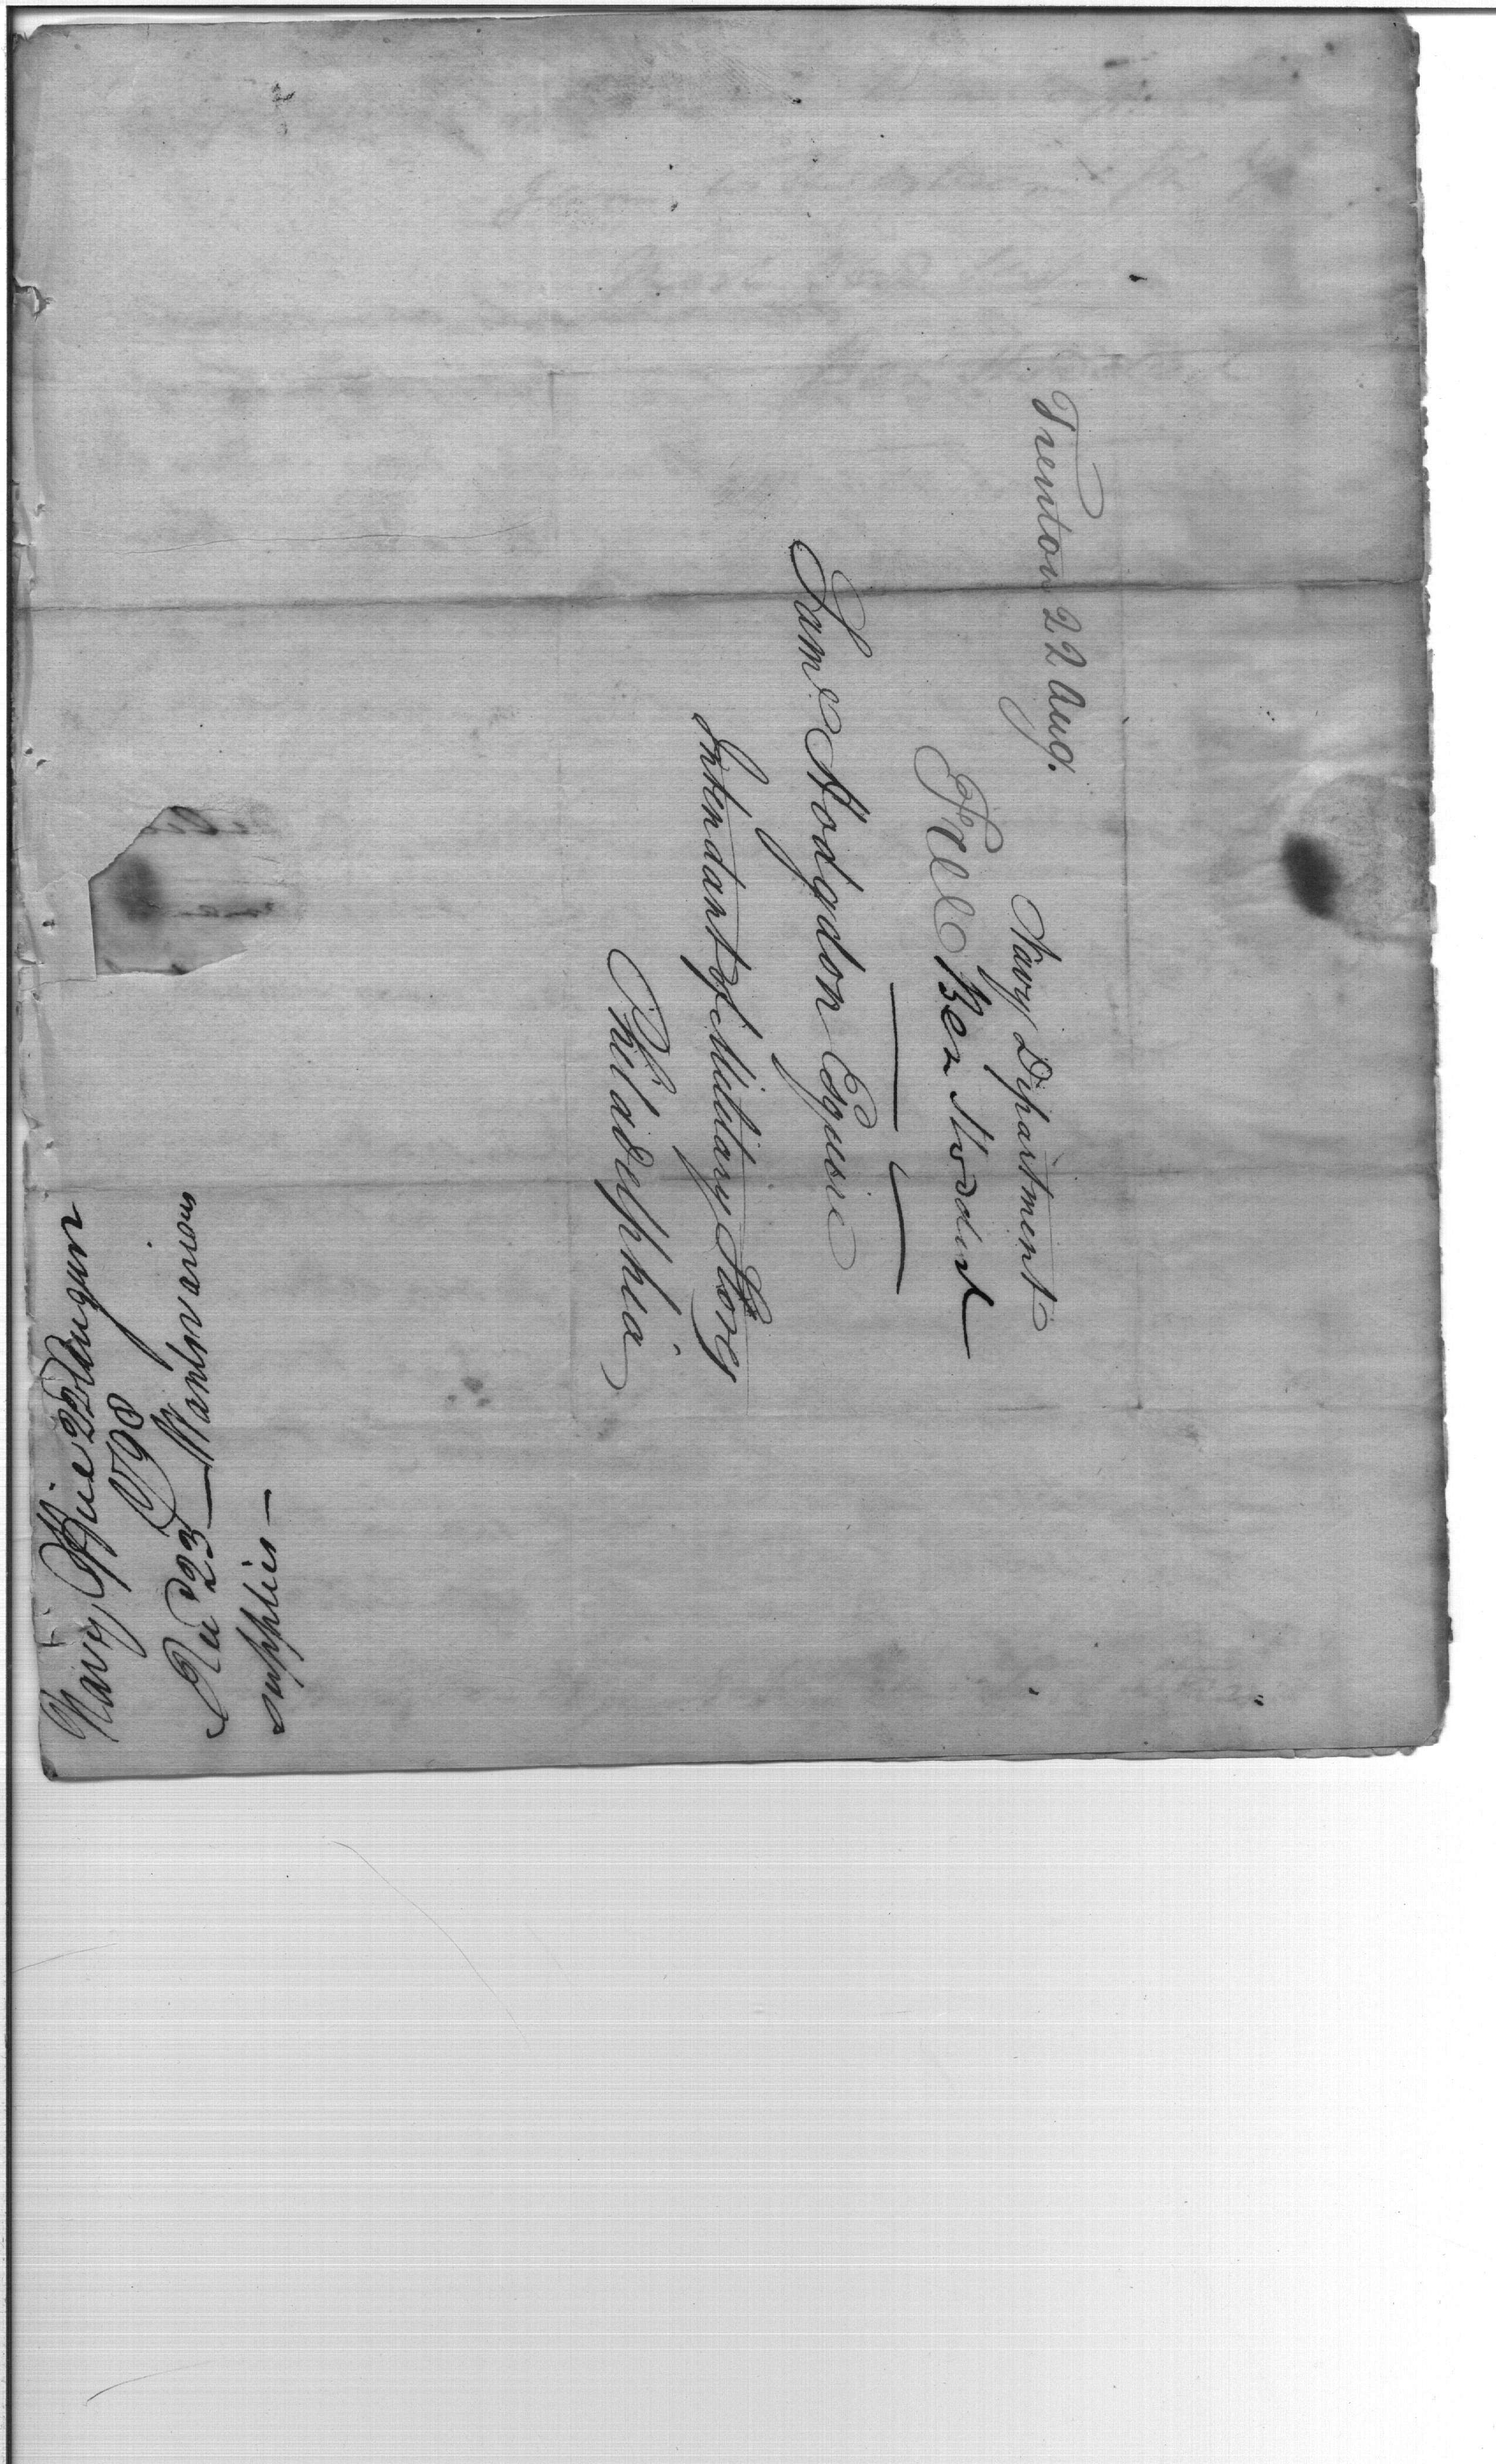 Trenton 22 Aug.
Navy Department
Free Ben Stoddert
Saml Hodgdon Esquire
Intendant of Military Stores
Philadelphia
Navy Office 22d August
1798
Recd 23 — Wants various
supplies —